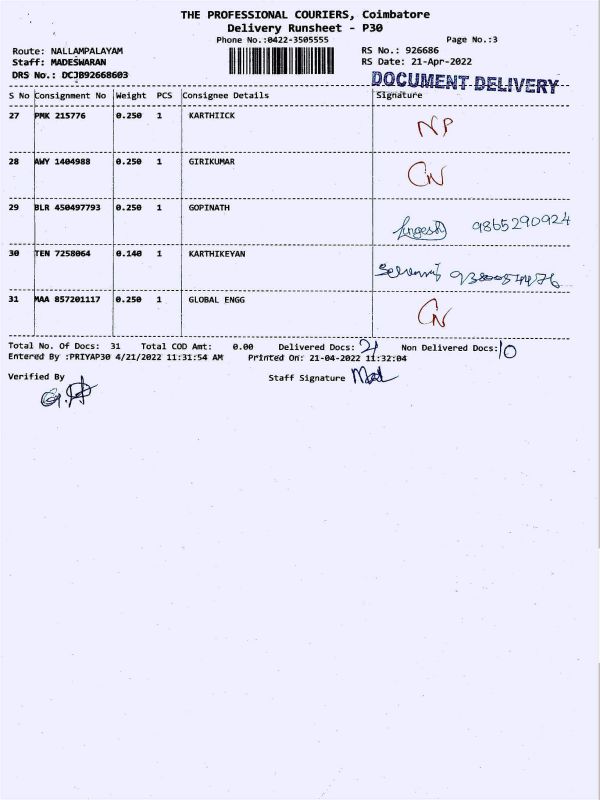 THE PROFESSIONAL COURIERS, Coimbatore
Delivery Runsheet - P30
Phone No.:0422-3505555 Page No.:3
Route: NALLAMPALAYAM RS No.: 926686
Staff: MADESWARAN RS Date: 21-Apr-2022
DRS No.: DCJB92668603
DOCUMENT DELIVERY
S No Consignment No Weight PCS Consignee Details Signature
27 PMK 215776 0.250 1 KARTHIICK NP
28 AWY 1404988 0.250 1 GIRIKUMAR CN
29 BLR 450497793 0.250 1 GOPINATH 9865290924
30 TEN 7258064 0.140 1 KARTHIKEYAN
31 MAA 857201117 0.250 1 GLOBAL ENGG CN
Total No. Of Docs: 31 Total COD Amt: 0.00 Delivered Docs: 21 Non Delivered Docs: 10
Entered By :PRIYAP30 4/21/2022 11:31:54 AM Printed On: 21-04-2022 11:32:04
Verified By Staff Signature